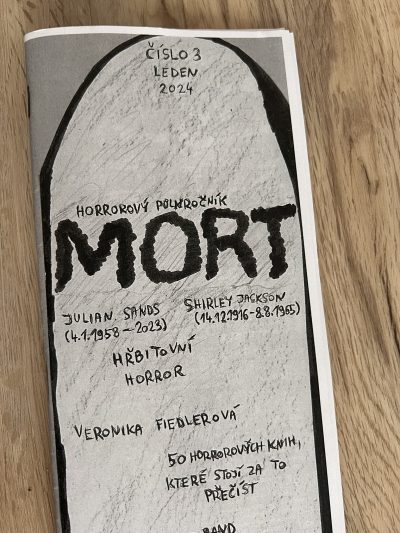 ČÍSLO 3
LEDEN
2024
HORROROVÝ PŮLROČNÍK
MORT
JULIAN SANDS
(4.1.1958 – 2023)
SHIRLEY JACKSON
(14.12.1916 - 8.8.1965)
HŘBITOVNÍ
HORROR
VERONIKA FIEDLEROVÁ
50 HORROROVÝCH KNIH,
KTERÉ STOJÍ ZA TO
PŘEČÍST
BAND